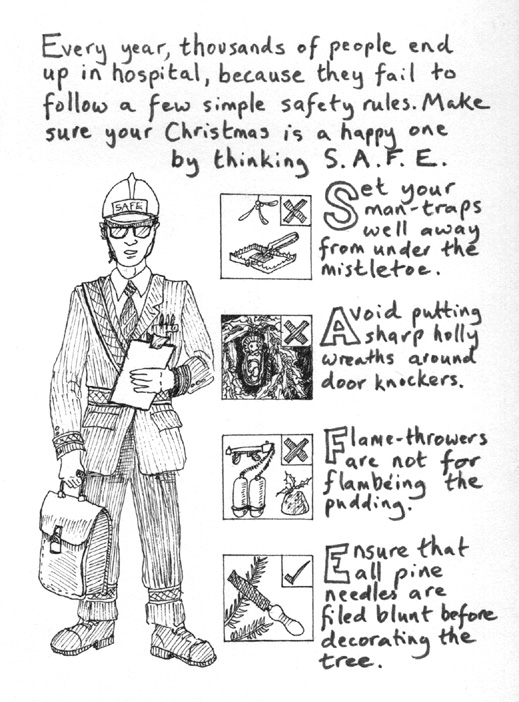 Every year, thousands of people end
up in hospital, because they fail to
follow a few simple safety rules. Make
sure your Christmas is a happy one
by thinking S.A.F.E.
SAFE
Set your
man-traps
well away
from under the
mistletoe.
Avoid putting
sharp holly
wreaths around
door knockers.
Flame-throwers
are not for
flambéing the
pudding.
Ensure that
all pine
needles are
filed blunt before
decorating the
tree.